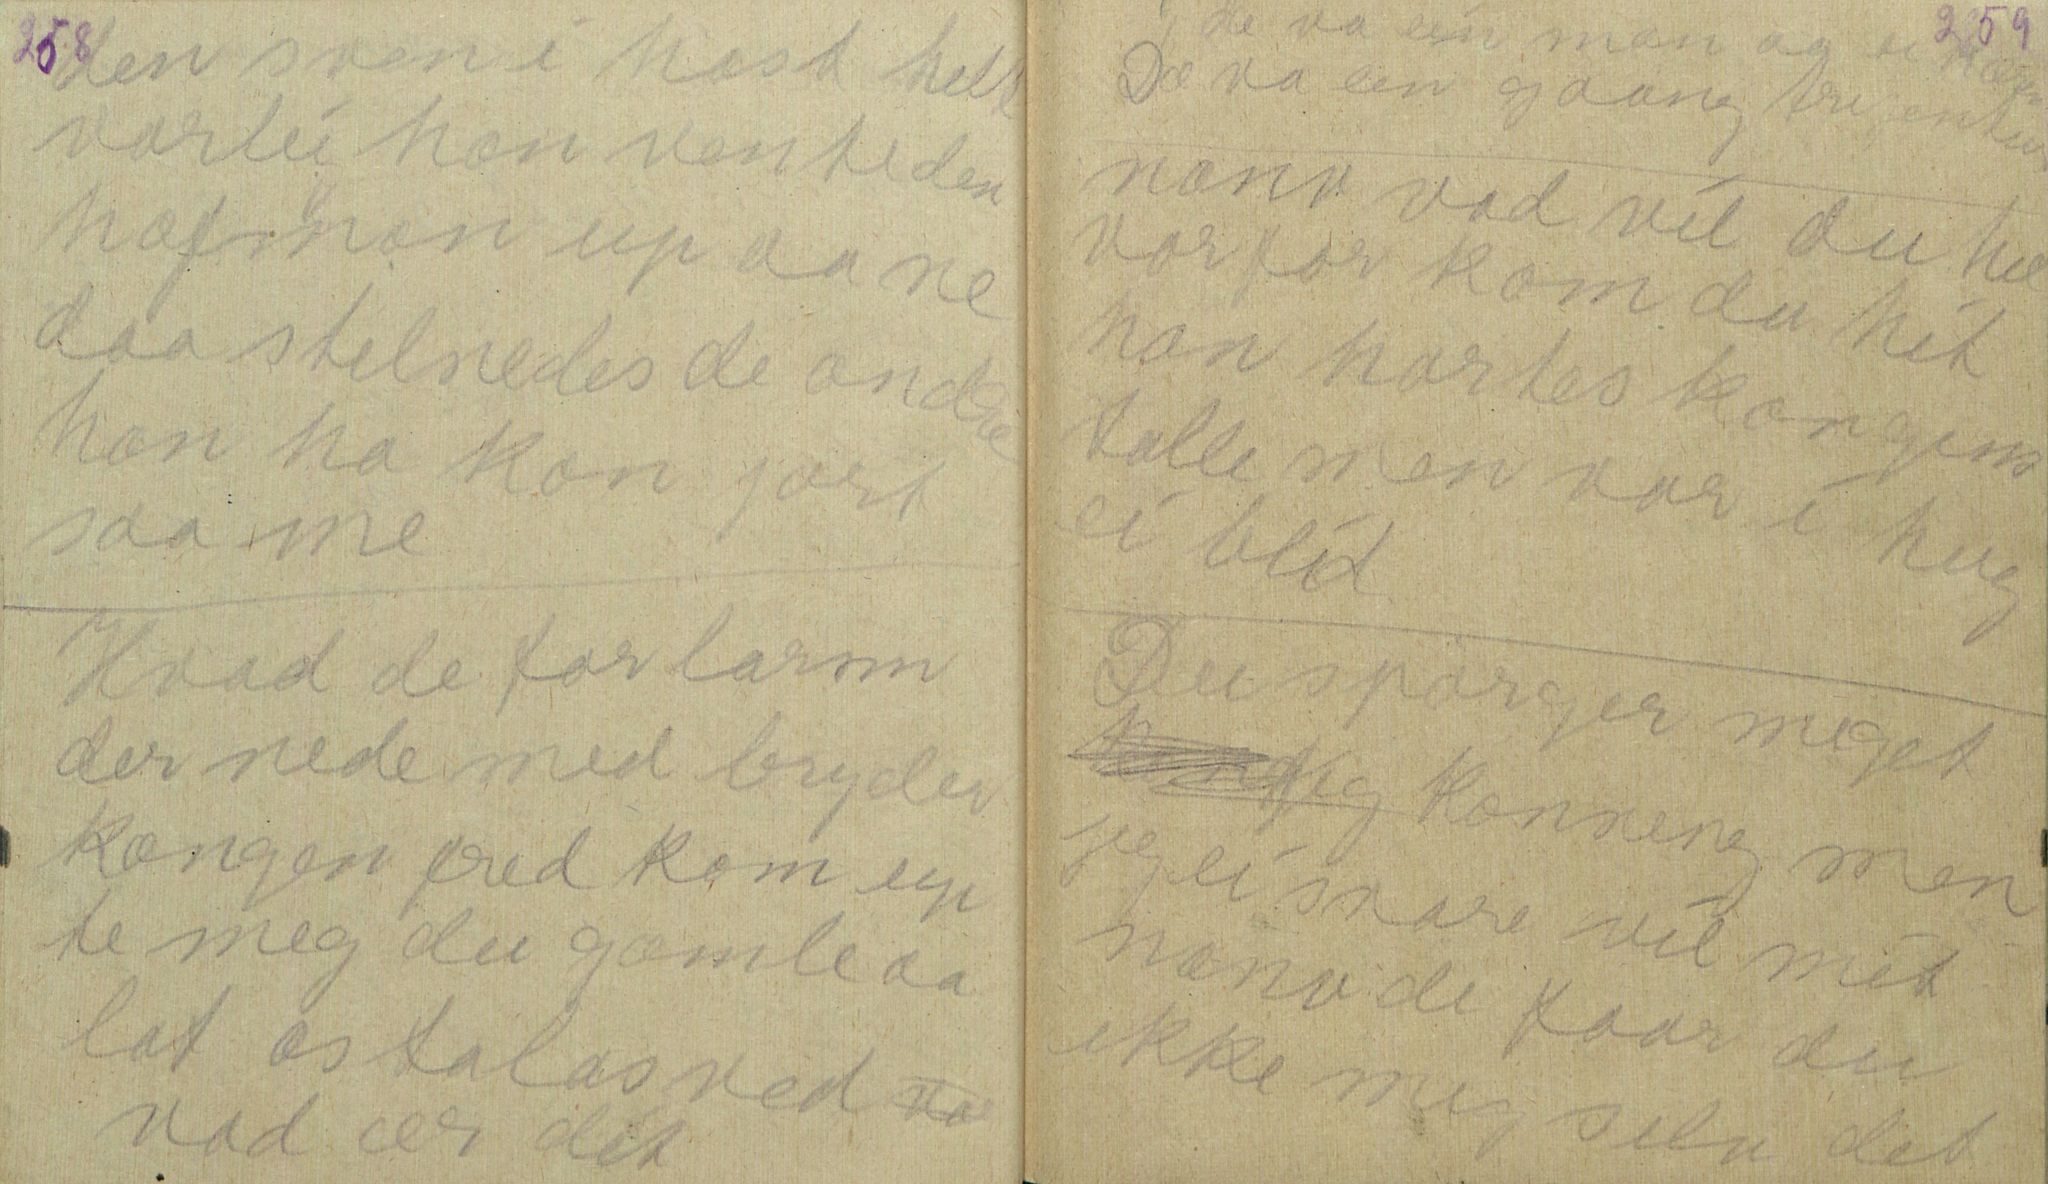 258
den sven i hast helt
varlei han venteden
hofman up aa ne
daa stelnedes de andre
han ha kan gort
saa me
Hvad de for larm
der nede med bryder
kongen fred kom up
te meg du gamle aa
lat os talas ved
vad ær det
259
de va ein man og
De va ein gaang tri
nanv vad vil du he
vorfor kom du hit
han hortes kongens
talle men var i hug
ei blid
Du sporger meget
jeg konneng men
jeg ei svare vil mit
nanv de faar du
ikke mig selv det